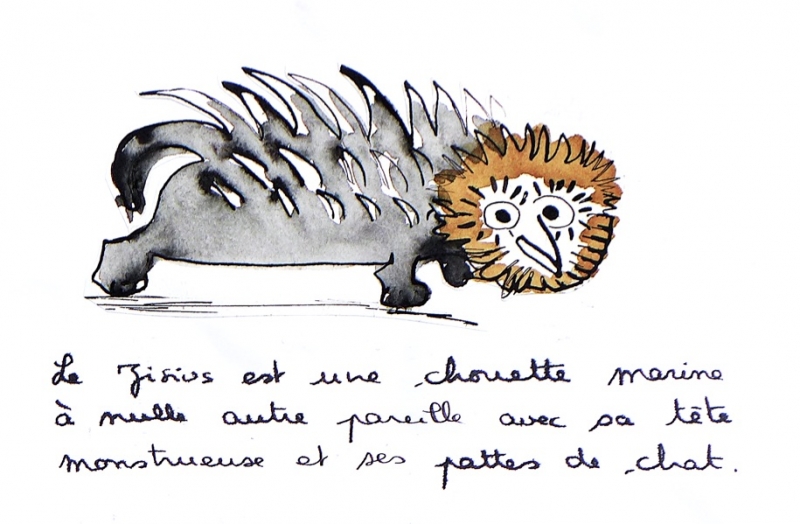 Le Zisius est une chouette marine
à nulle autre pareille avec sa tête
monstrueuse et ses pattes de chat.